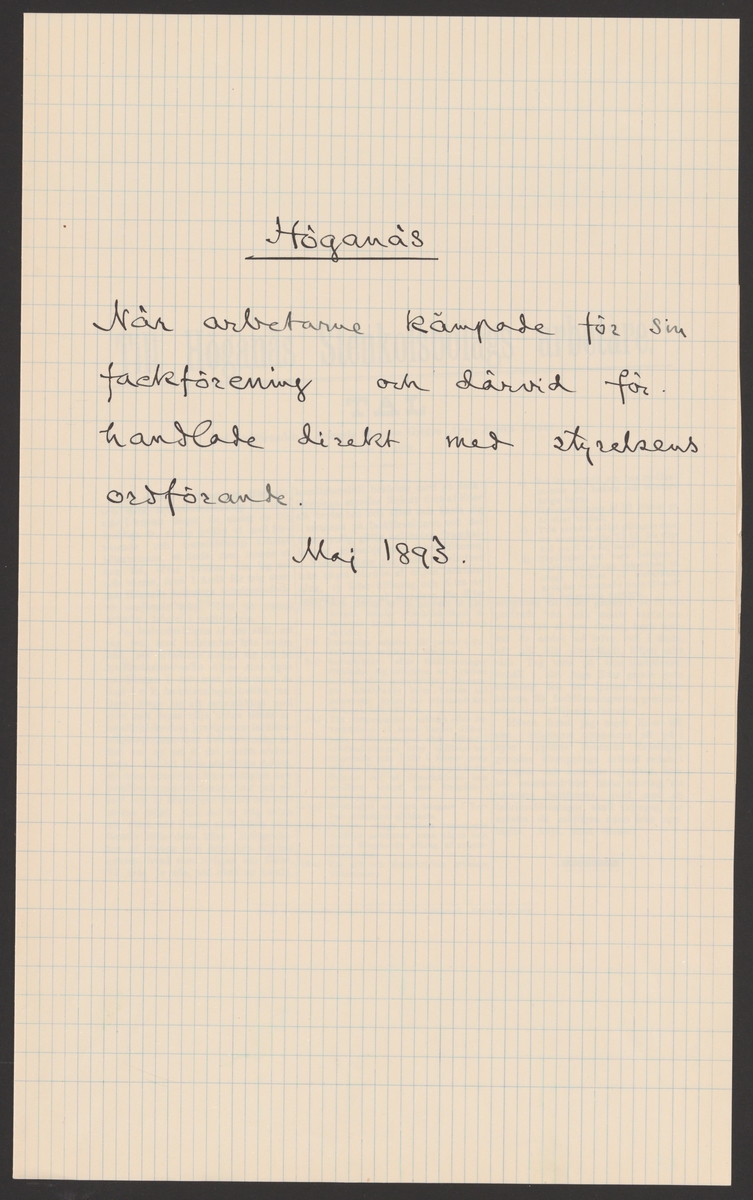 Höganäs
När arbetarne kämpade för sin
fackförening och därvid för-
handlade direkt med styrelsens
ordförande.
Maj 1893.